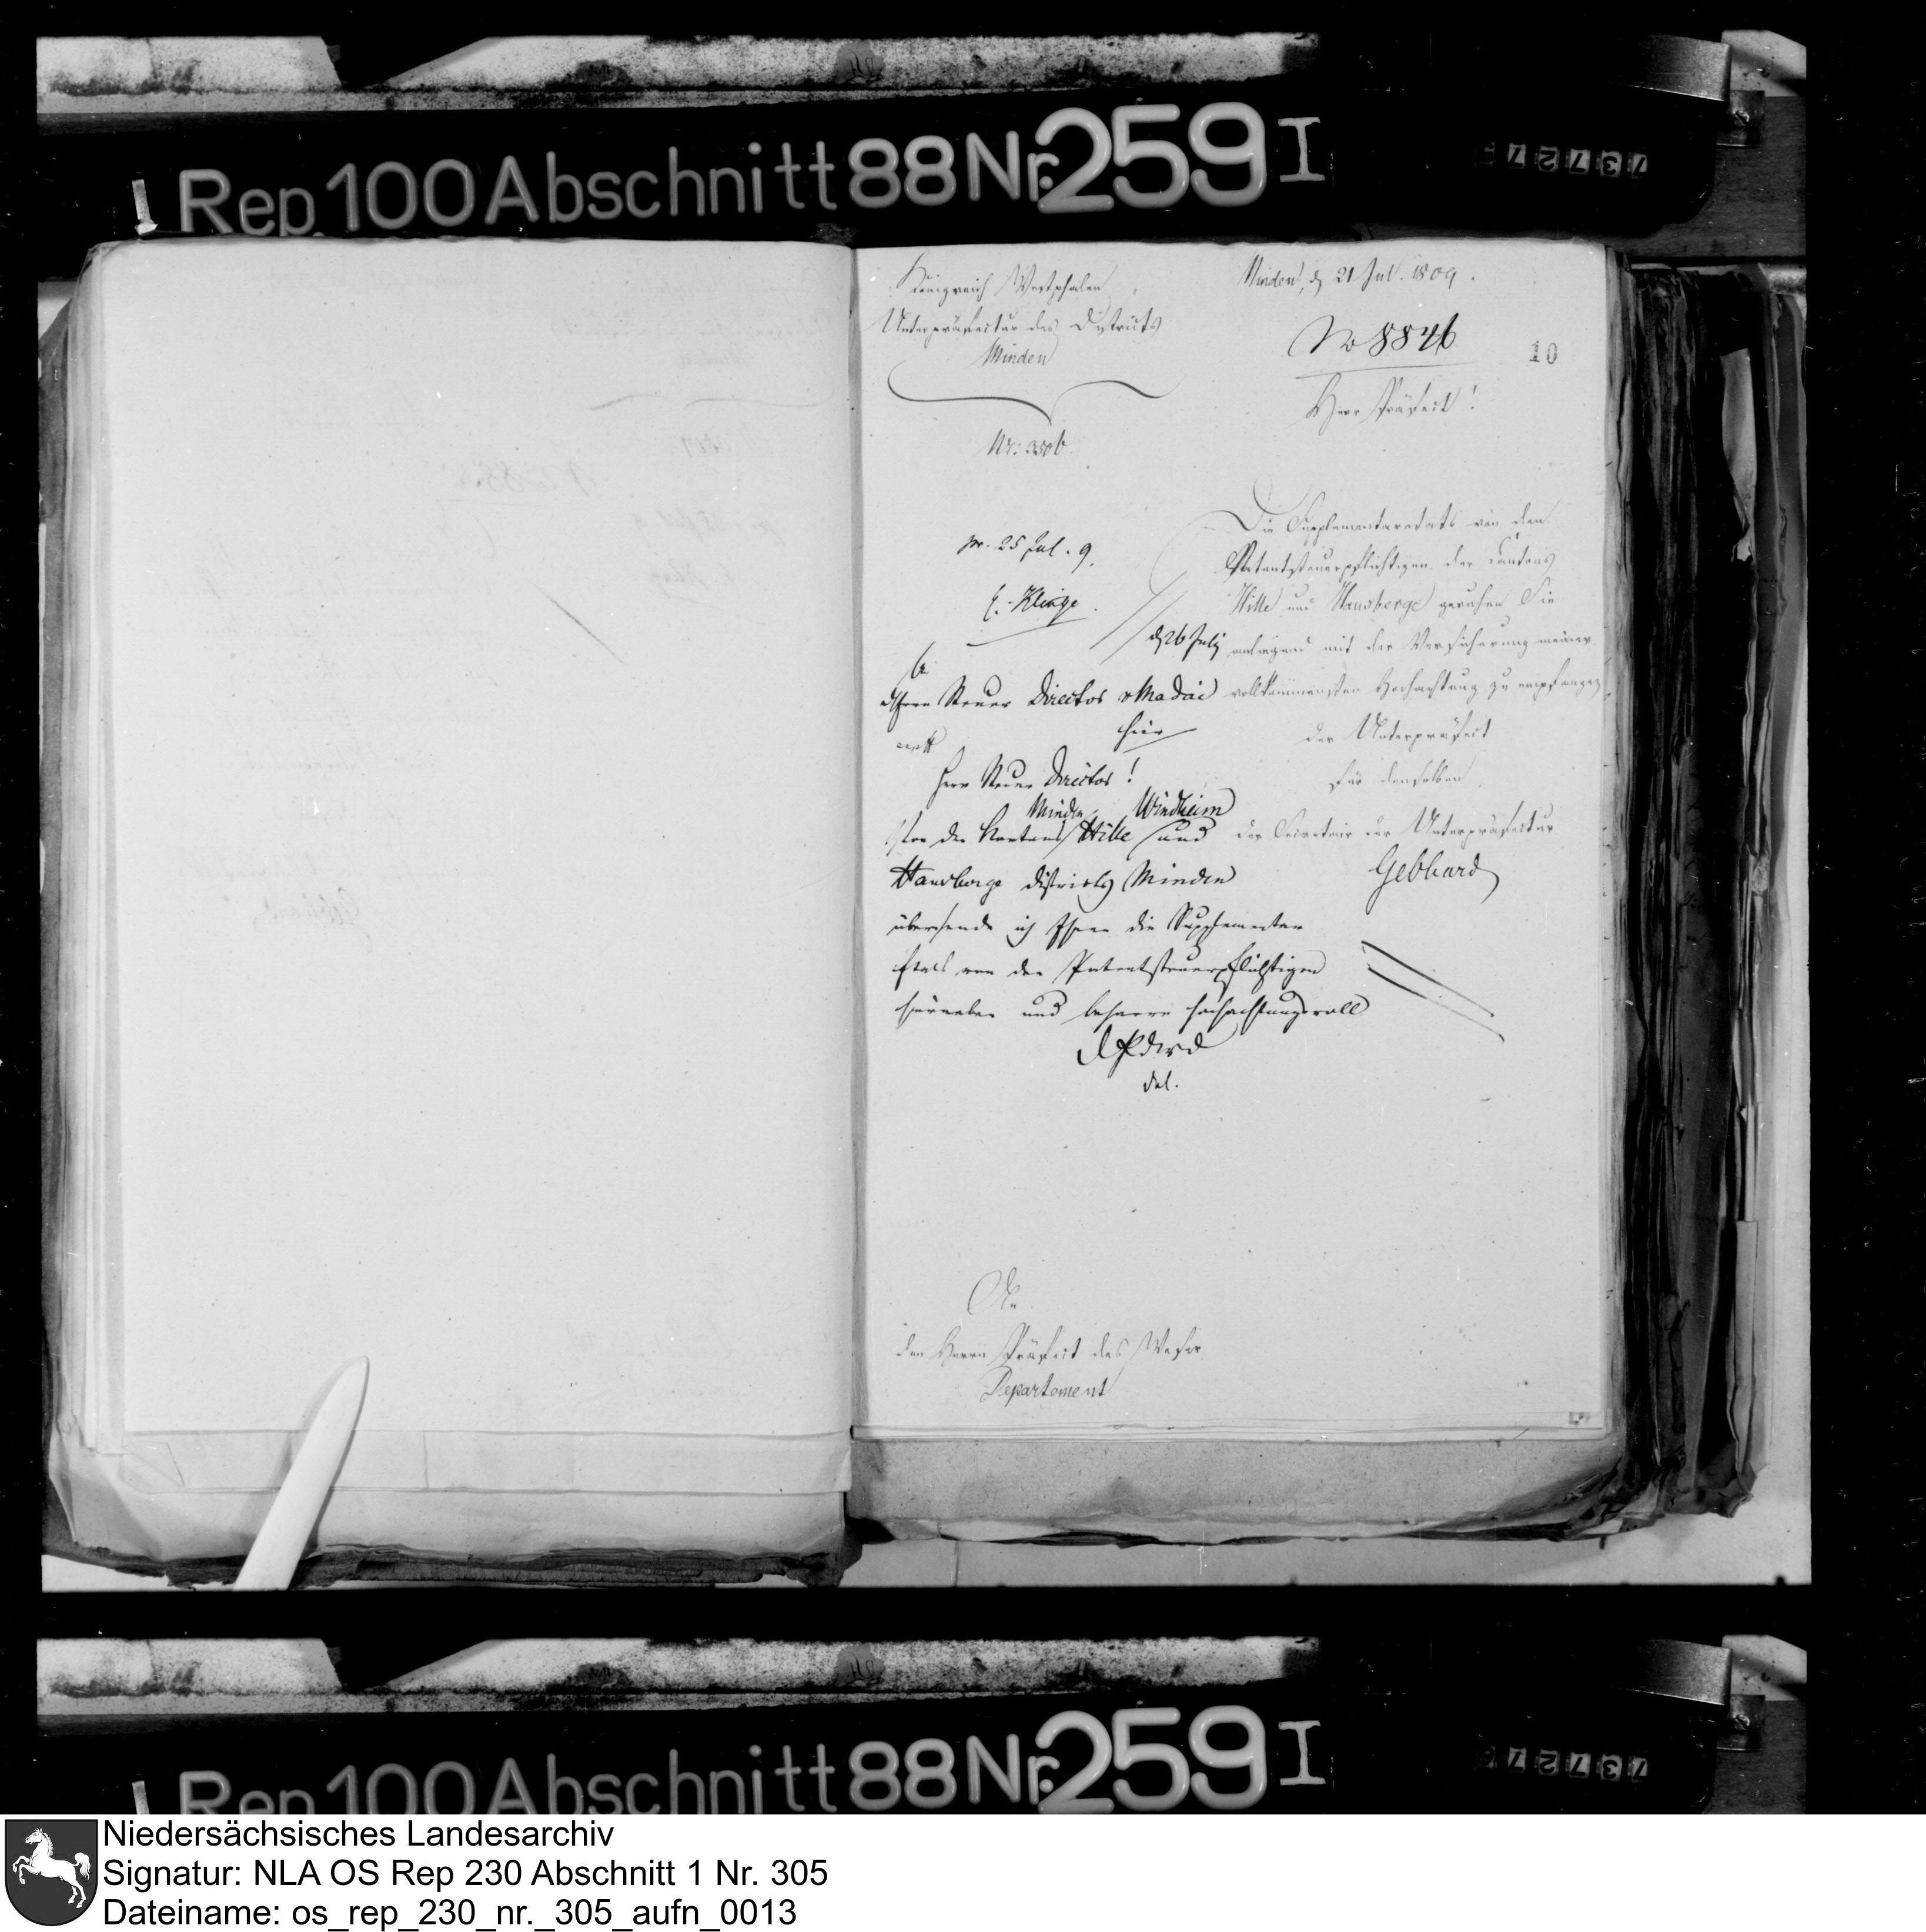 Rep. 100 Abschnitt 88 Nr. 259 I
73727
Königreich Westphalen
Unterpräfectur des Districts
Minden
Nr: 3506.
Minden, d. 21 Jul. 1809.
No 8846
10
Herr Präfect!
Die Supplementaretats von den
Patentsteuerpflichtigen der Cantons
Hille und Hausberge geruhen Sie
anliegend mit der Versicherung meiner
vollkommensten Hochachtung zu empfangen
der Unterpräfect
für denselben
der Secretair der Unterpräfectur
Gebhard
pr. 25 Jul. 9.
E. Klinge.
d 26 July
Herrn Steuer Director v Madai
hier
Herr Steuer Director!
Minden, Windheim
Von den Cantons Hille und
Hausberge Districts Minden
übersende ich Ihnen die Supplementar
Etats von den Patentsteuerpflichtigen
hierneben und beharre hochachtungsvoll
D P d W D
del.
An
den Herrn Präfect des Weser
Departement
Rep. 100 Abschnitt 88 Nr. 259 I
73727
Niedersächsisches Landesarchiv
Signatur: NLA OS Rep 230 Abschnitt 1 Nr. 305
Dateiname: os_rep_230_nr._305_aufn_0013